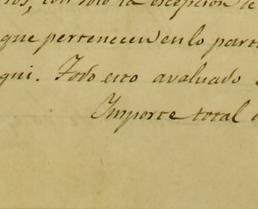 con solo la excepcion de
que pertenecen en lo parti
qui. Todo esto avaluado
Importe total